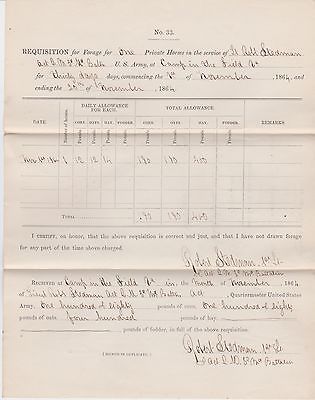 No. 33.
REQUISITION for Forage for One Private Horses in the service of Lt Robt Stedman
U. S. Army, at Camp in the Field Va
for Thirty days, commencing the 1st of November, 1864, and
ending the 30th of November, 1864
DATE Number of horses. DAILY ALLOWANCE FOR EACH. TOTAL ALLOWANCE. REMARKS
CORN. OATS. HAY. FODDER. CORN. OATS. HAY. FODDER.
Pounds. Pounds. Pounds. Pounds. Pounds. Pounds. Pounds. Pounds.
1 12 12 14 400
TOTAL 400
I CERTIFY, on honor, that the above requisition is correct and just, and that I have not drawn forage
for any part of the time above charged.
Robt Stedman 1st Lt
RECEIVED at Camp in the Field Va in the month of November, 1864
of Quartermaster United States
Army, One hundred & eighty pounds of corn, One hundred & eighty
pounds of oats, four hundred
pounds of fodder, in full of the above requisition.
Robt Stedman 1st Lt
(SIGNED IN DUPLICATE.)